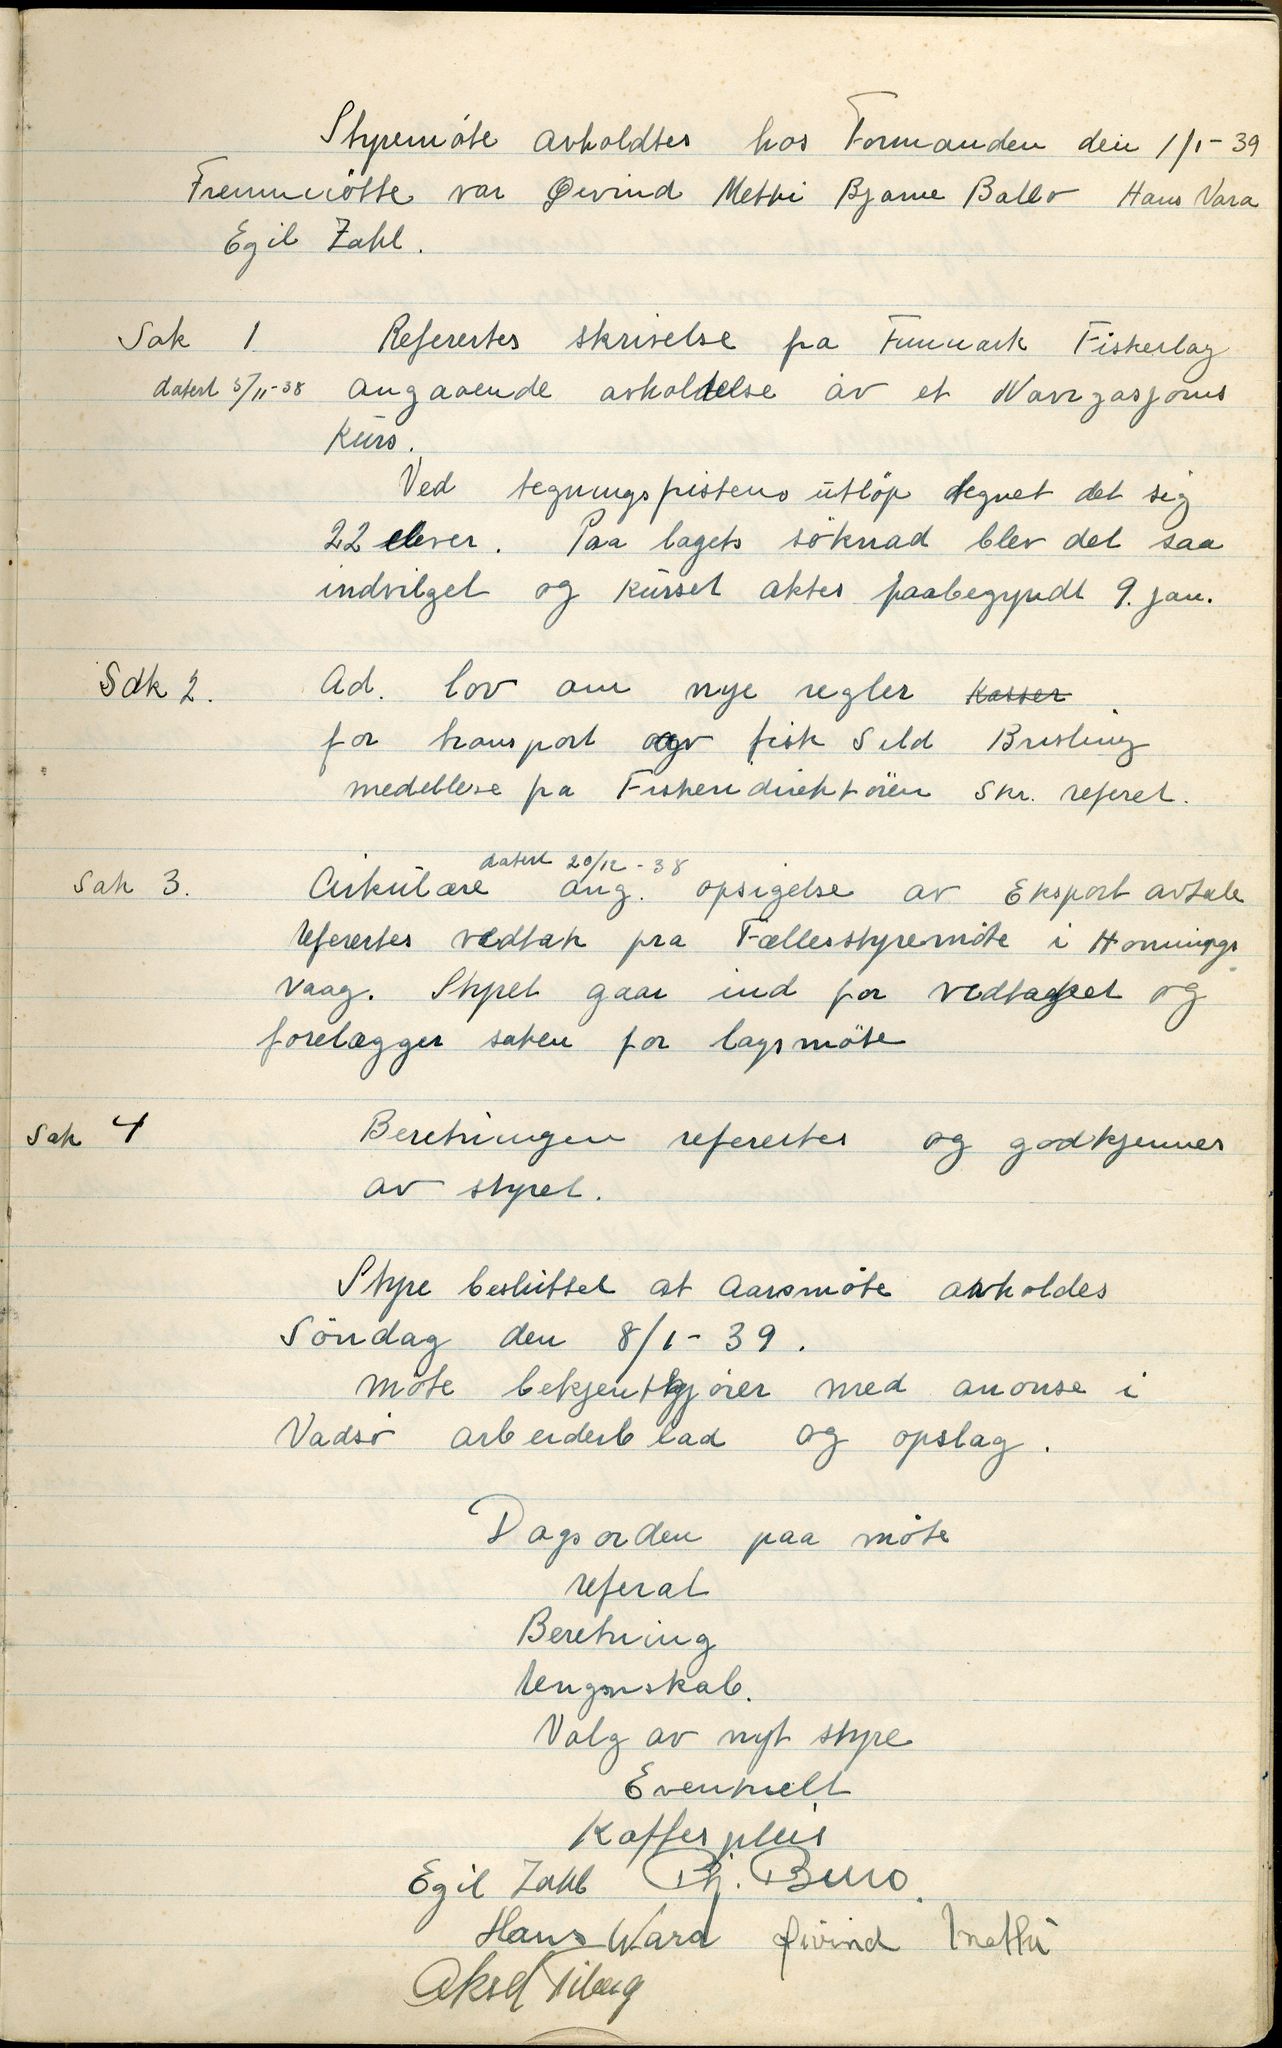 Styremöte avholdtes hos Formanden den 1/1-39
Fremmötte var Øivind Methi Bjarne Ballo Hans Vara
Egil Zahl.
Sak 1 Referertes skrivelse fra Finmark Fiskerlag
datert 5/11-38 angaaende avholdelse av et Navigasjons
kurs.
Ved tegningsfristens utlöp tegnet det sig
22 elever. Paa lagets söknad blev det saa
indvilget og kurset aktes paabegyndt 9. jan.
Sak 2. Ad. lov om nye regler kasser
for transport av fisk Sild Brisling
meddelelse fra Fiskeridirektören skr. referet.
datert 20/12-38
Sak 3. Cirkulære ang. opsigelse av Eksportavtale
refertes vedtak fra Fællesstyremöte i Honnings
vaag. Styret gaar ind for vedtaket og
forelægger saken for lagsmöte
Sak 4 Beretningen referertes og godkjennes
av styret.
Styre besluttet at aarsmöte avholdes
Söndag den 8/1-39.
Möte bekjentgjöres med anonse i
Vadsö arbeiderblad og opslag.
Dagsorden paa möte
referat
Beretning
Rengnskab.
Valg av nyt styre
Eventuelt
Kaffe
Egil Zahl Bj.
Hans Wara Øivind Methi
Aksel